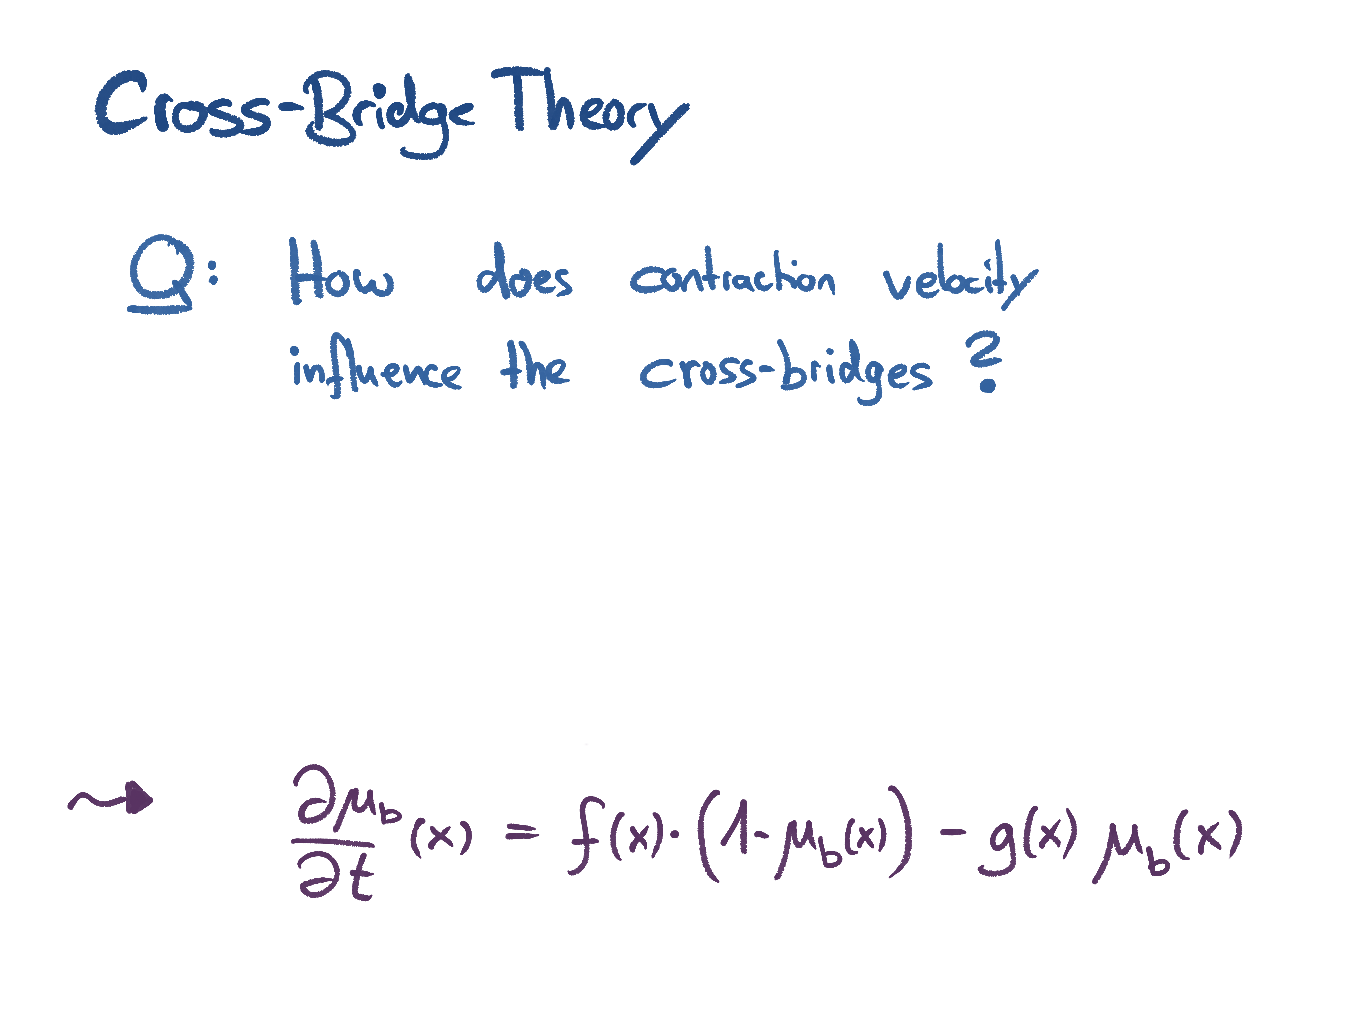 Cross-Bridge Theory
Q: How does contraction velocity
influence the cross-bridges?
∂μ_b/∂t (x) = f(x)·(1-μ_b(x)) - g(x) μ_b(x)